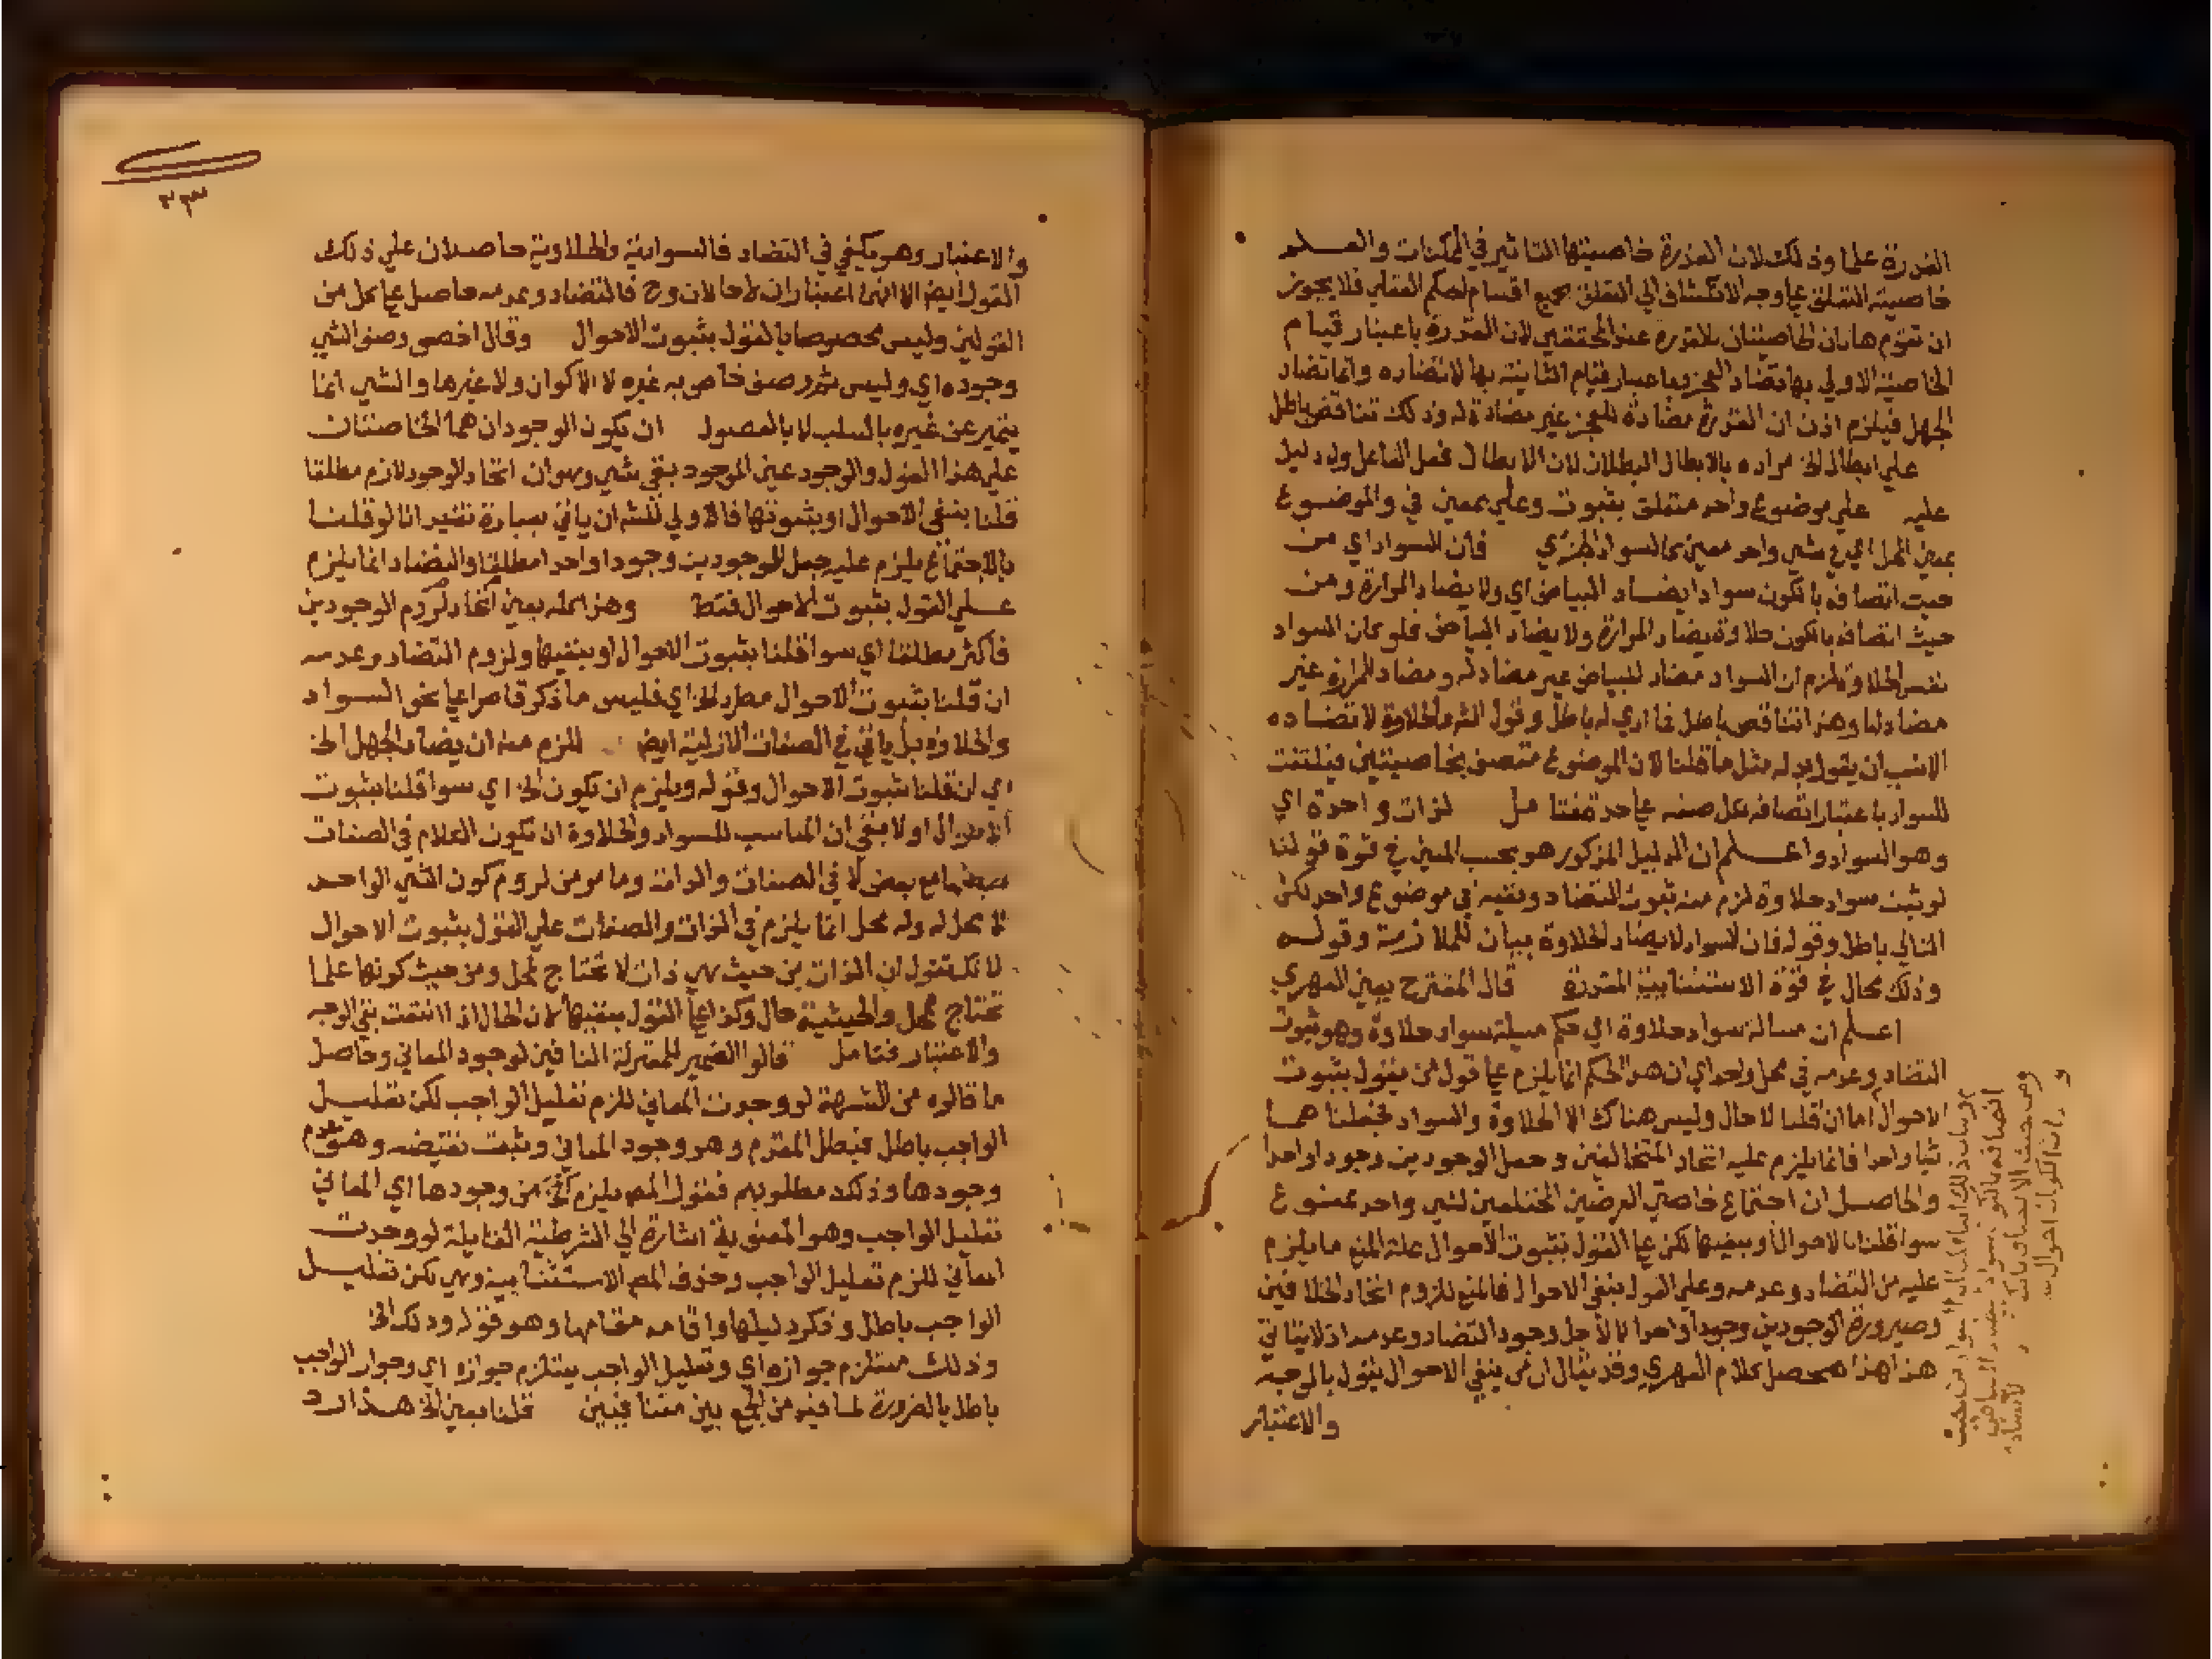 القدرة علما وذلك لان القدرة خاصيتها التاثير في الممكنات والعلم
خاصيته التعلق علي وجه الانكشاف اي التعلق بجميع اقسام الحكم العقلي فلا يجوز
ان تقوم هاتان الخاصيتان بالقدرة عند المحققين لان القدرة باعتبار قيام
الخاصية الاولي بها تضاد العجز وباعتبار قيام الثانية بها لا تضاده وانما تضاد
الجهل فيلزم اذن ان القدرة مضادة للعجز غير مضادة له وذلك تناقض باطل
علي ابطال الخ مراده بالابطال البطلان لان الابطال فعل الفاعل ولا دليل
عليه علي موضوع واحد متعلق بثبوت وعلي بمعني في والموضوع
بمعني المحل اي في شي واحد معين كالسواد الجزئي فان السواد اي من
حيث اتصافه بالكون سوادا يضاد البياض اي ولا يضاد المرارة ومن
حيث اتصافه بالكون حلاوة يضاد المرارة ولا يضاد البياض فلو كان السواد
نفس الحلاوة لزم ان السواد مضاد للبياض غير مضاد له ومضاد للمرارة غير
مضاد لها وهذا تناقض باطل فما ادي له باطل وقول الش والحلاوة لا تضاده
الانسب ان يقول بدله مثل ما قلنا لان الموضوع متصف بخاصيتين فيلتفت
للسواد باعتبار اتصافه بكل صفة علي حدة فتامل لذات واحدة اي
وهو السواد واعلم ان الدليل المذكور هو بحسب المعني في قوة قولنا
لو ثبت سواد حلاوة لزم منه ثبوت التضاد ونفيه في موضوع واحد لكن
التالي باطل وقوله فان السواد لا يضاد الحلاوة بيان للملازمة وقوله
وذلك محال في قوة الاستثنايية المقدرة قال المقترح يعني الفهري
اعلم ان مسالة سواد حلاوة اي حكم مسيلة سواد حلاوة وهو ثبوت
التضاد وعدمه في محل واحد اي ان هذا الحكم انما يلزم علي قول من يقول بثبوت
الاحوال اما ان قلنا لا حال وليس هناك الا الحلاوة والسواد فجعلنا هما
شيا واحدا فانما يلزم عليه اتحاد المتخالفين وجعل الوجودين وجودا واحدا
والحاصل ان اجتماع خاصتي العرضين المختلفين لشي واحد ممنوع
سوا قلنا بالاحوال او بنفيها لكن علي القول بثبوت الاحوال علة المنع ما يلزم
عليه من التضاد وعدمه وعلي القول بنفي الاحوال فالمنع للزوم اتحاد الخلافين
وصيرورة الوجودين وجودا واحدا لا لاجل وجود التضاد وعدمه اذ لا يتاتي
هذا هذا محصل كلام الفهري وقد يقال ان من ينفي الاحوال يقول بالوجه
والاعتبار
٣٣
والاعتبار وهو يكفي في التضاد فالسوادية والحلاوية حاصلان علي ذلك
القول ايضا الا انهما اعتباران لا حالان وح فالتضاد وعدمه حاصل علي كل من
القولين وليس مخصوصا بالقول بثبوت الاحوال وقال اخص وصف الشي
وجوده اي وليس ثم وصف خاص به غيره لا الاكوان ولا غيرها والشي انما
يتميز عن غيره بالسلب لا بالفصول ان يكون الوجودان هما الخاصتان
علي هذا القول والوجود عين الموجود بقي شي وهو ان اتحاد الوجود لازم مطلقا
قلنا بنفي الاحوال او بثبوتها فالاولي للش ان ياتي بعبارة تفيد انا لو قلنا
بالاجتماع يلزم عليه جعل الموجودين وجودا واحدا مطلقا والتضاد انما يلزم
علي القول بثبوت الاحوال فقط وهذا كله يعني اتحاد لزوم الوجودين
فاكثر مطلقا اي سوا قلنا بثبوت الاحوال او بنفيها ولزوم التضاد وعدمه
ان قلنا بثبوت الاحوال مطرد الخ اي فليس ما ذكر قاصرا علي نحو السواد
والحلاوة بل ياتي في الصفات الازلية ايضا للزم منه ان يضاد الجهل الخ
اي ان قلنا بثبوت الاحوال وقوله ويلزم ان يكون الخ اي سوا قلنا بثبوت
الاحوال او لا بقي ان المناسب للسواد والحلاوة ان يكون الكلام في الصفات
بعضها مع بعض لا في الصفات والذات وما مر من لزوم كون الشي الواحد
لا محل له وله محل انما يلزم في الذات والصفات علي القول بثبوت الاحوال
لانك تقول ان الذات من حيث هي ذات لا تحتاج لمحل ومن حيث كونها علما
تحتاج لمحل والحيثية حال وكذا علي القول بنفيها لان الحال اذا انتفت بقي الوجه
والاعتبار فتامل قالوا الضمير للمعتزلة النافين لوجود المعاني وحاصل
ما قالوه من الشبهة لو وجدت المعاني للزم تعليل الواجب لكن تعليل
الواجب باطل فبطل المقدم وهو وجود المعاني وثبت نقيضه وهو عدم
وجودها وذلك مطلوبهم فقول المص يلزم من وجودها اي المعاني
تعليل الواجب وهو المعنوية اشارة الي الشرطية القايلة لو وجدت
المعاني للزم تعليل الواجب وحذف المص الاستثنايية وهي لكن تعليل
الواجب باطل وذكر دليلها واقامه مقامها وهو قوله وذلك الخ
وذلك مستلزم جوازه اي وتعليل الواجب يستلزم جوازه اي وجواز الواجب
باطل بالضرورة لما فيه من الجمع بين متنافيين قلنا يعني الخ هذا رد